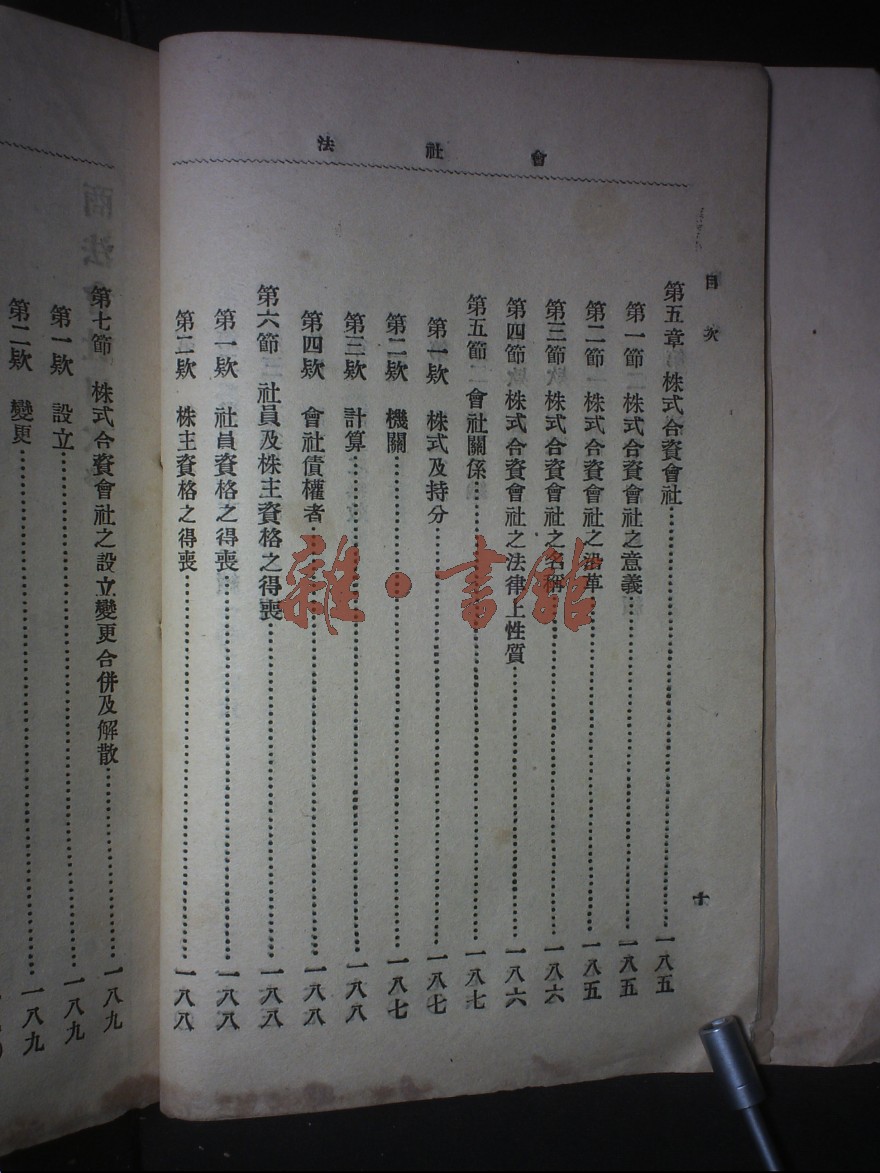 會社法
目次
十
第五章 株式合資會社……一八五
第一節 株式合資會社之意義……一八五
第二節 株式合資會社之沿革……一八五
第三節 株式合資會社之名稱……一八六
第四節 株式合資會社之法律上性質……一八六
第五節 會社關係……一八七
第一欵 株式及持分……一八七
第二欵 機關……一八七
第三欵 計算……一八八
第四欵 會社債權者……一八八
第六節 社員及株主資格之得喪……一八八
第一欵 社員資格之得喪……一八八
第二欵 株主資格之得喪……一八八
第七節 株式合資會社之設立變更合併及解散……一八九
第一欵 設立……一八九
第二欵 變更……一八九
雜·書館